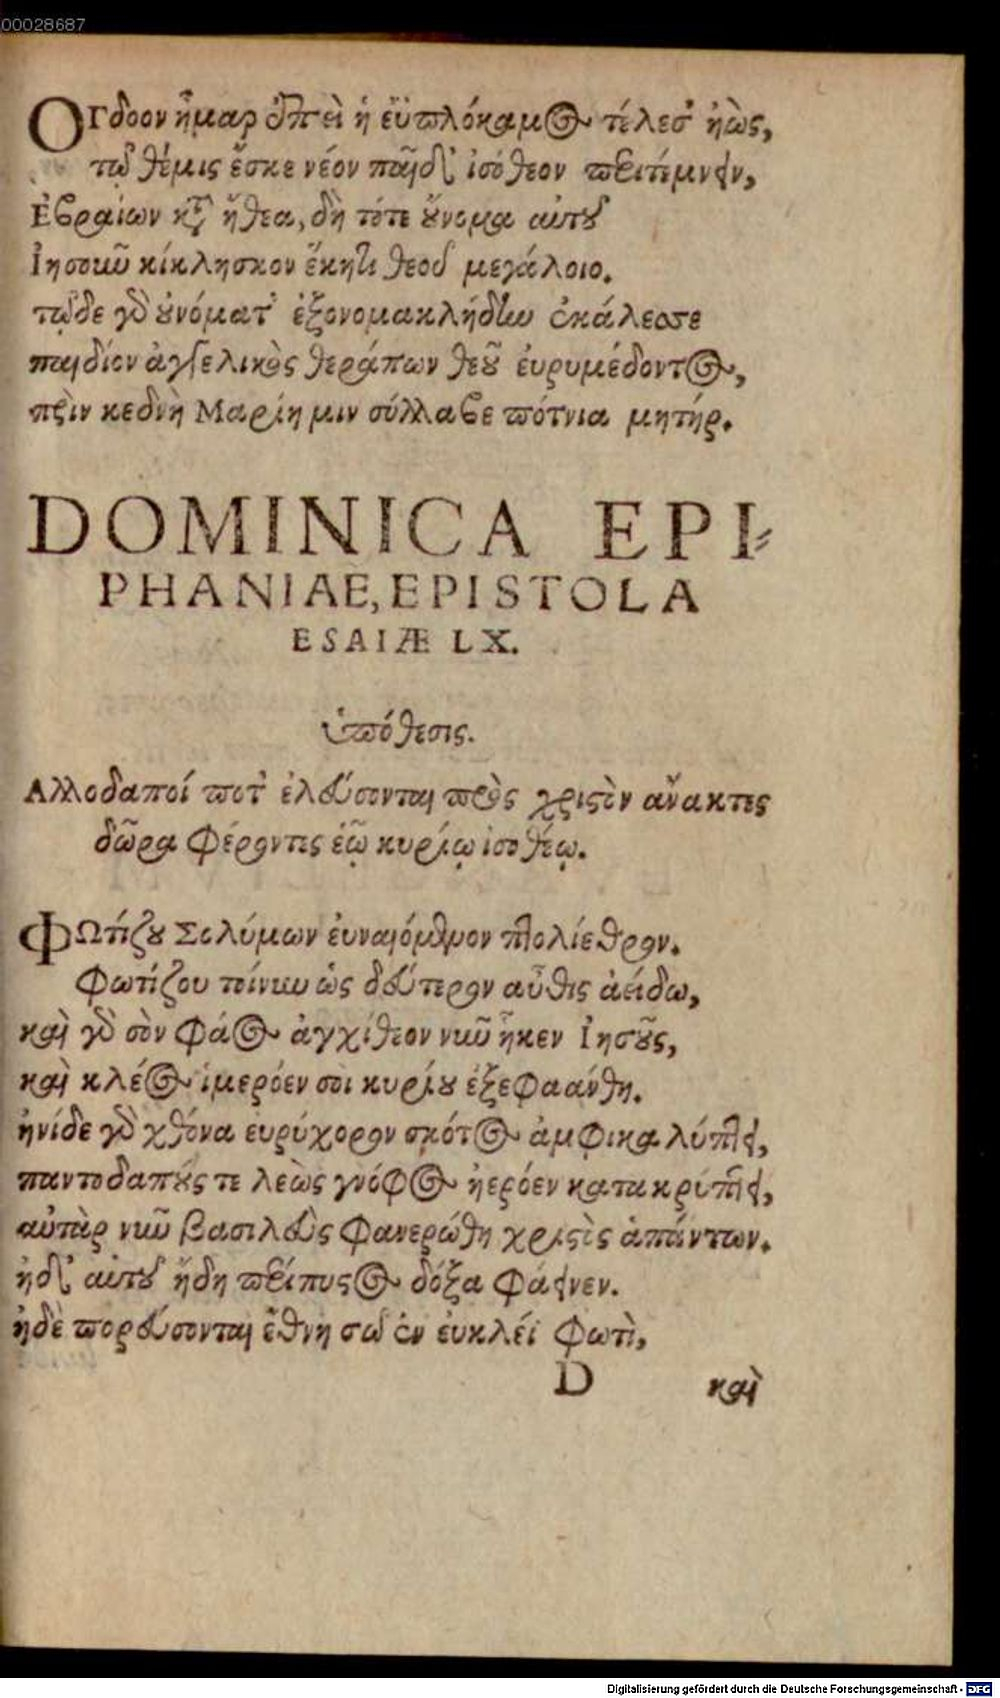 00028687
Ογδοον ἦμαρ ὅτ' ἐπεὶ ἡ ἐϋπλόκαμος τέλεσ' ἠὼς,
τῷ θέμις ἔσκε νέον παῖδ' ἰσόθεον περιτέμνειν,
Ἑβραίων κατ' ἤθεα, δὴ τότε οὔνομα αὐτοῦ
Ἰησοιοῦν κίκλησκον ἕκητι θεοῦ μεγάλοιο.
τῷδε γὰρ οὐνόματ' ἐξονομακλήδην ἐκάλεσσε
παιδίον ἀγγελικὸς θεράπων θεοῦ εὐρυμέδοντος,
πρὶν κεδνὴ Μαρίη μιν σύλλαβε πότνια μητήρ.
DOMINICA EPI-
PHANIAE, EPISTOLA
ESAIÆ LX.
ὑπόθεσις.
Αλλοδαποί ποτ' ἐλεύσονται πρὸς χριστὸν ἄνακτες
δῶρα φέροντες ἑῷ κυρίῳ ἰσοθέῳ.
ΦΩτίζου Σολύμων ἐυναιόμενον πτολίεθρον.
Φωτίζου τοίνυν ὡς δεύτερον αὖθις ἀείδω,
καὶ γὰρ σὸν φάος ἀγχίθεον νῦν ἧκεν Ἰησοῦς,
καὶ κλέος ἱμερόεν σοι κυρίου ἐξεφαάνθη.
ἠνίδε γὰρ χθόνα ευρύχορον σκότος ἀμφικαλύπτει,
παντοδαπούς τε λεὼς γνόφος ἠερόεν κατακρύπτει,
αὐτὰρ νῦν βασιλεὺς φανερώθη χριστὸς ἁπάντων.
ἠδ' αὐτοῦ ἤδη περίπυστος δόξα φάεινεν.
ἠδὲ πορεύσονται ἔθνη σῷ ἐν ἐυκλέϊ φωτὶ,
D καὶ
Digitalisierung gefördert durch die Deutsche Forschungsgemeinschaft - DFG